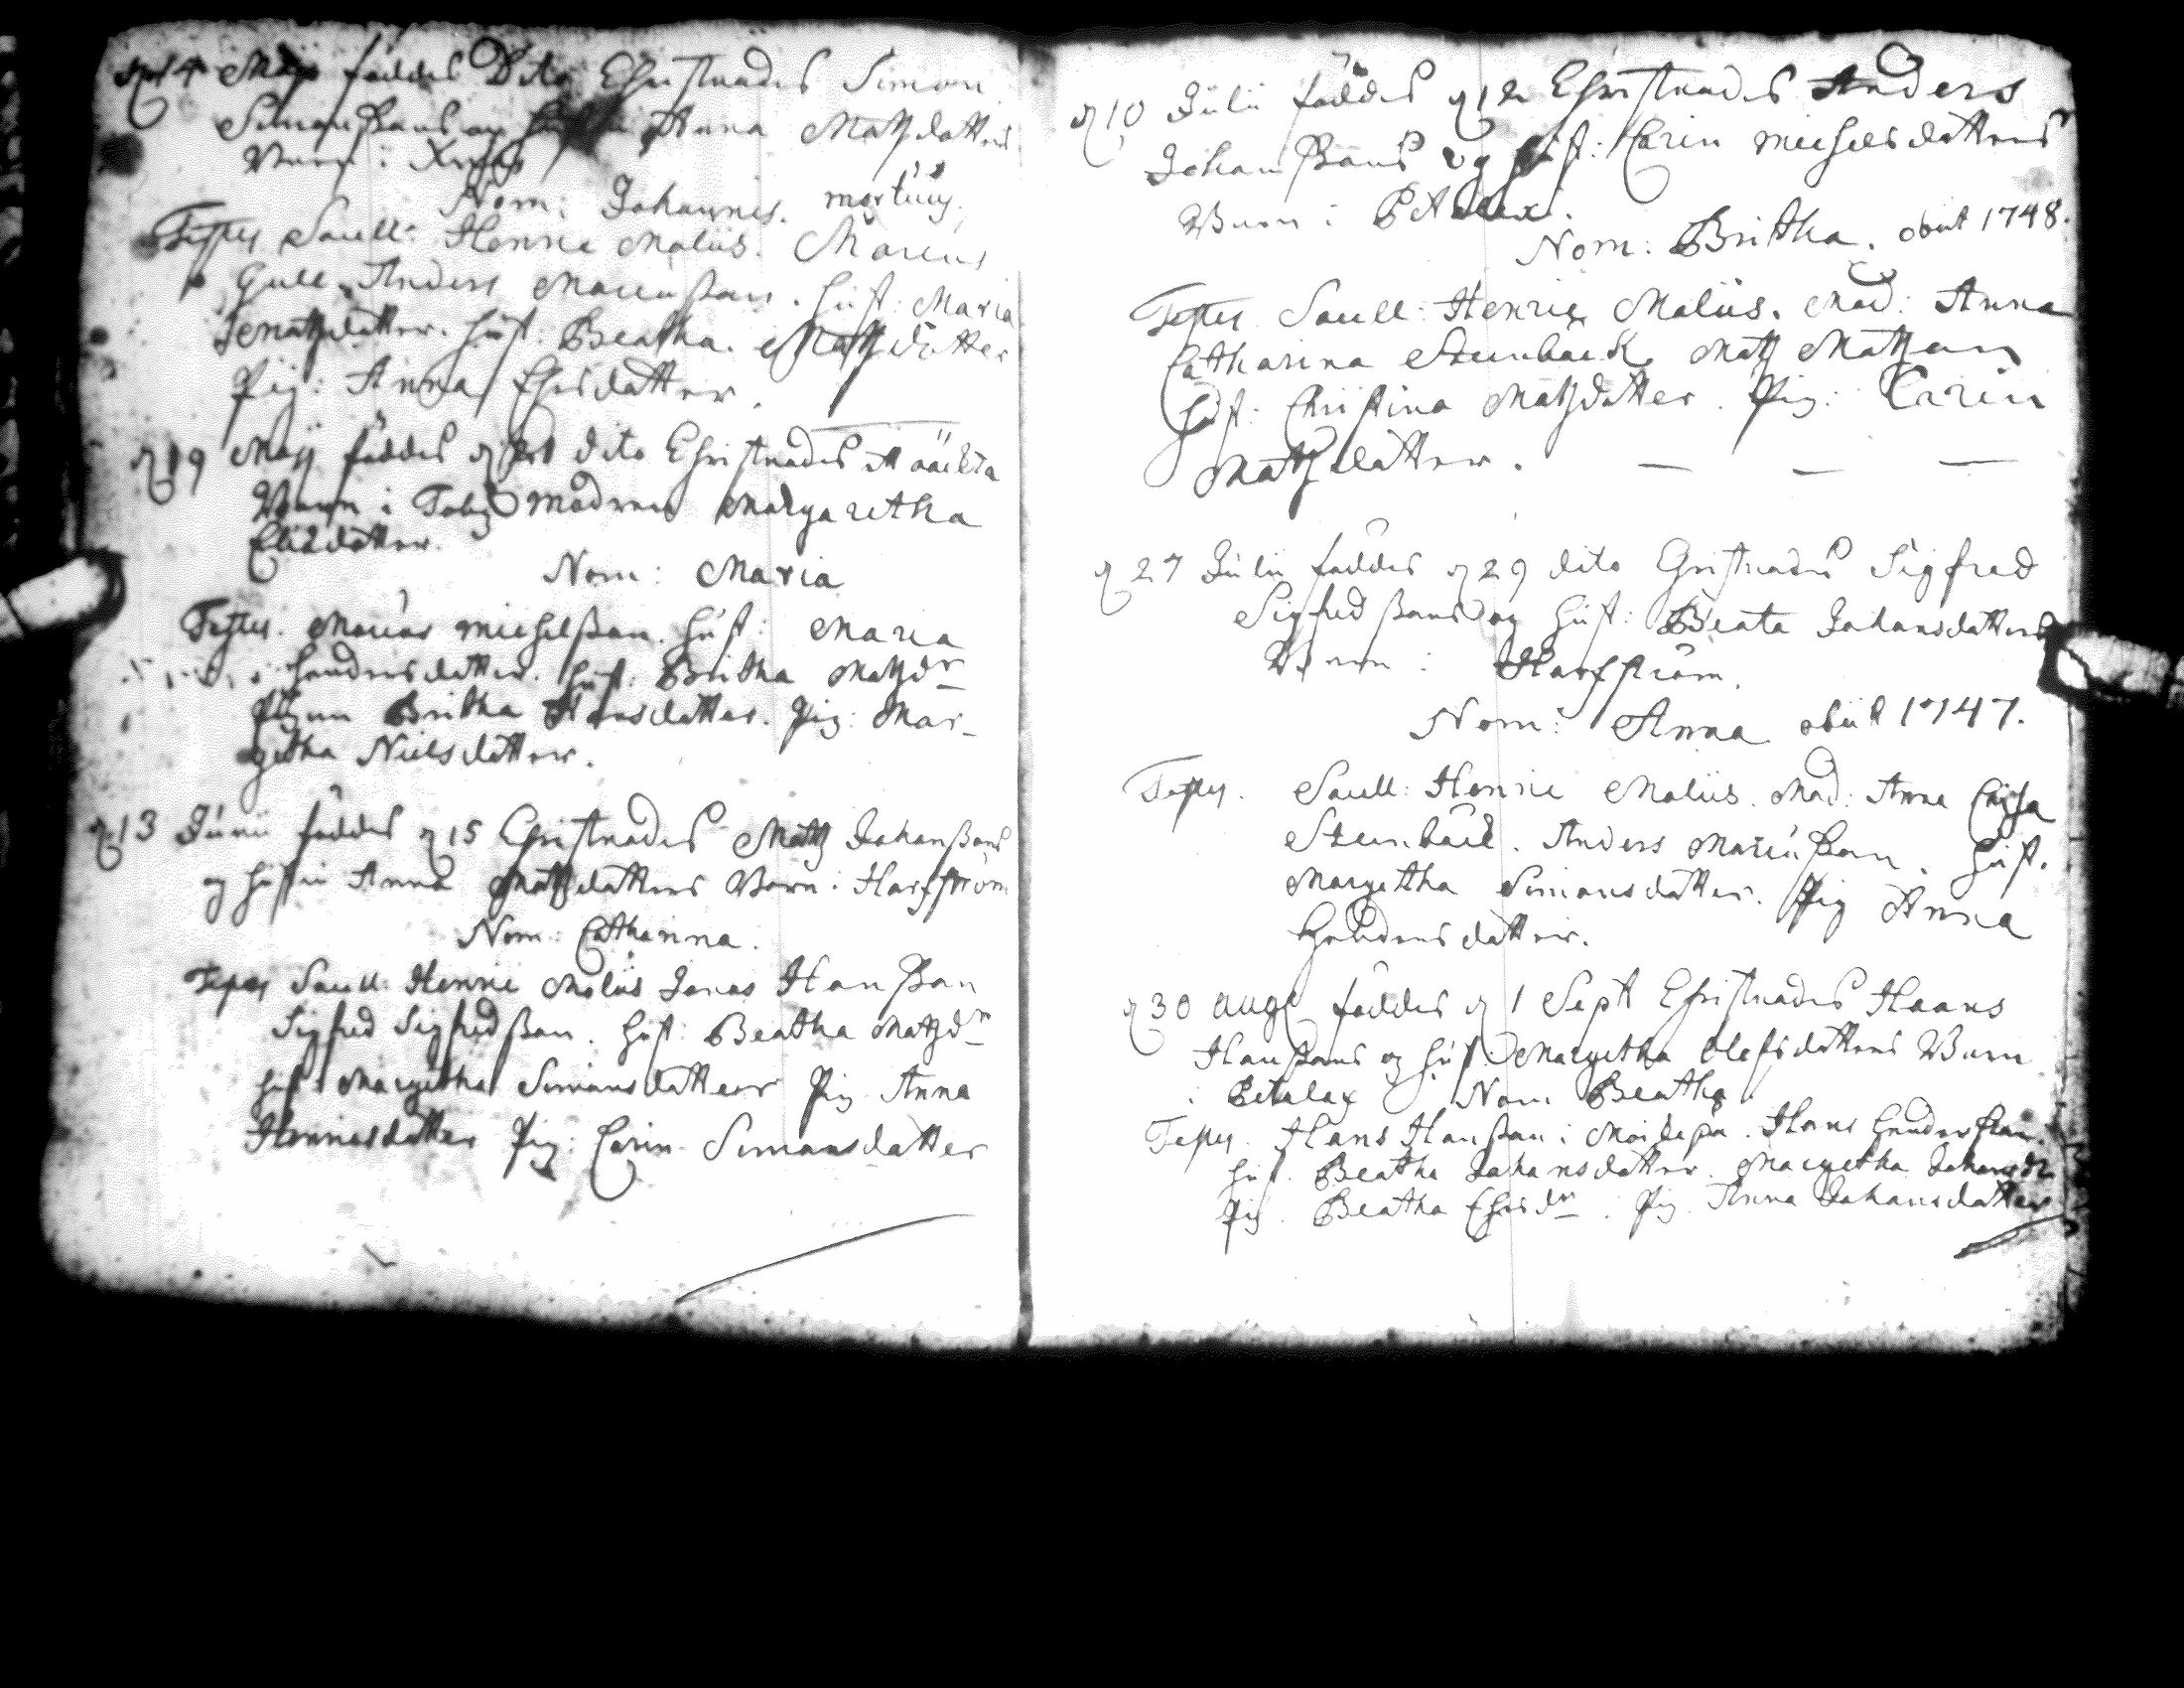 d 14 Maji föddes Dito Christnades Simon
Simonssons og Hustru Anna Mattzdotters
Barn i
Nom: Johannes. mortuus.
Testes Saell: Henric Malius. Marcus
Gull. Anders Marcusson. Hust: Maria
Hust: Beatha Mattzdotter
Pig: Anna Ersdotter.
d 19 Maji föddes d 21 dito Christnades it oäckta
Barn i Töby modren Margaretha
Ersdotter.
Nom: Maria
Testes. Marcus Michelsson. Hust: Maria
Hendersdotter. Hust: Britha Matzdr
Pigan Britha Hansdotter. Pig: Mar-
getha Nielsdotter.
d 13 Junii föddes d 15 Christnades Mattz Johanssons
og Hustru Anna Mattzdotters Barn i Harfström
Nom: Catharina.
Testes Saell: Henric Malius Jonas Hansson
Sigfred Sigfredsson. Hust: Beatha Matzdr
Hust: Margetha Simonsdotter Pig Anna
Hennesdotter Pig: Carin Simonsdotter
d 10 Julii föddes d 12 Christnades Anders
Johanssons og Hust: Carin Michelsdotters
Barn i Petalax.
Nom: Britha. obiit 1748.
Testes. Saell: Henric Malius. Mad: Anna
Catharina Steenbäck Mattz Mattzson
Hust: Christina Matzdotter. Pig: Carin
Mattzdotter. — — —
d 27 Julii föddes d 29 dito Christnades Sigfred
Sigfredssons og Hust: Beata Johansdotters
Barn i Harfström.
Nom: Anna obiit 1747.
Testes. Saell: Henric Malius. Mad: Anna Caisa
Steenbäck. Anders Marcusson. Hust.
Margetha Simonsdotter. Pig Anna
Hendersdotter.
d 30 Aug föddes d 1 Sept Christnades Haans
Hanssons og Hust: Margetha Olofsdotters Barn
i Petalax Nom Beatha
Testes. Hans Hansson i Moikepä. Hans Hendersson.
Hust. Beatha Johansdotter. Margetha Johansdr
Pig. Beatha Ersdr. Pig. Anna Johansdotter